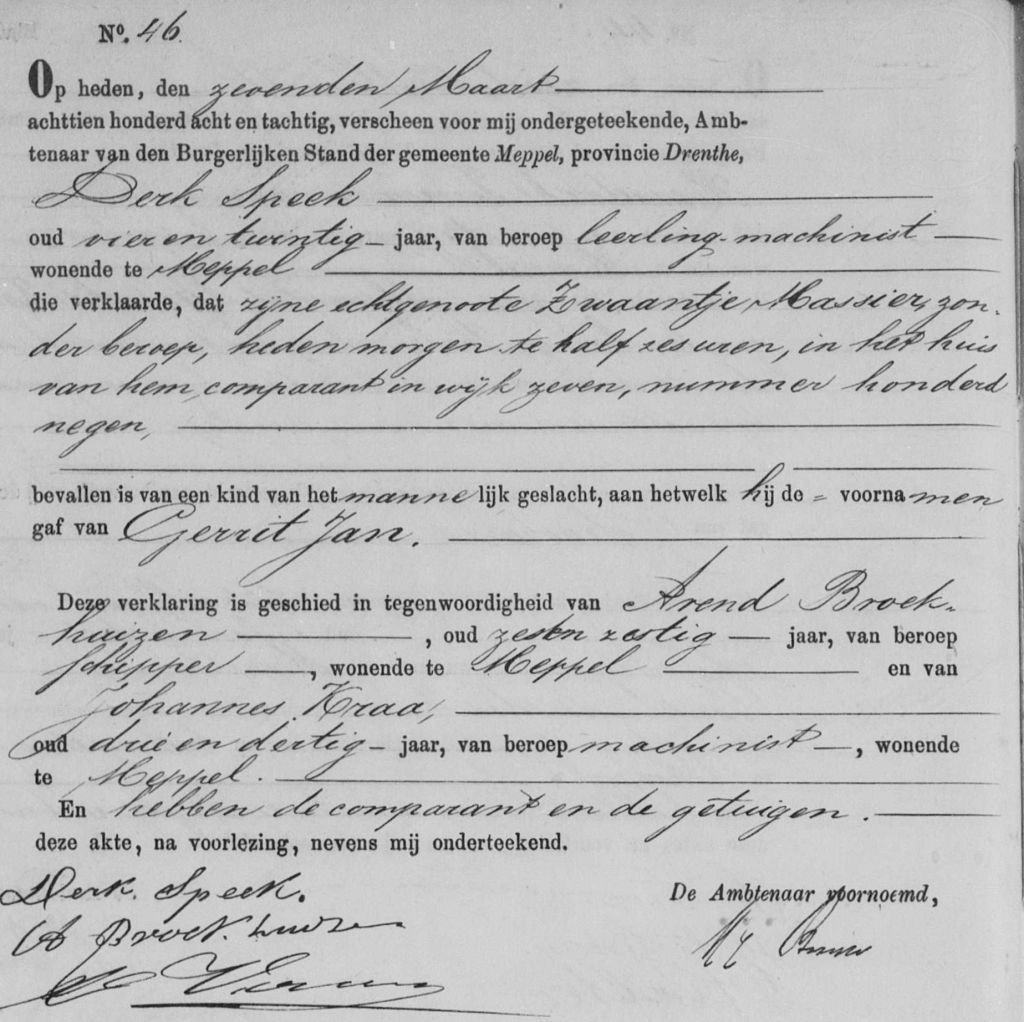 No. 46.
Op heden, den zevenden Maart
achttien honderd acht en tachtig, verscheen voor mij ondergeteekende, Amb-
tenaar van den Burgerlijken Stand der gemeente Meppel, provincie Drenthe,
Derk Speek
oud vier en twintig jaar, van beroep leerling-machinist
wonende te Meppel
die verklaarde, dat zijne echtgenoote Zwaantje Massier, zon-
der beroep, heden morgen te half zes uren, in het huis
van hem comparant in wijk zeven, nummer honderd
negen,
bevallen is van een kind van het mannelijk geslacht, aan hetwelk hij de = voornamen
gaf van Gerrit Jan.
Deze verklaring is geschied in tegenwoordigheid van Arend Broek-
huizen, oud zestig jaar, van beroep
schipper, wonende te Meppel en van
Johannes Kraa,
oud drie en dertig jaar, van beroep machinist, wonende
te Meppel.
En hebben de comparant en de getuigen.
deze akte, na voorlezing, nevens mij onderteekend.
Derk. Speek.
De Ambtenaar voornoemd,
A Broekhuizen